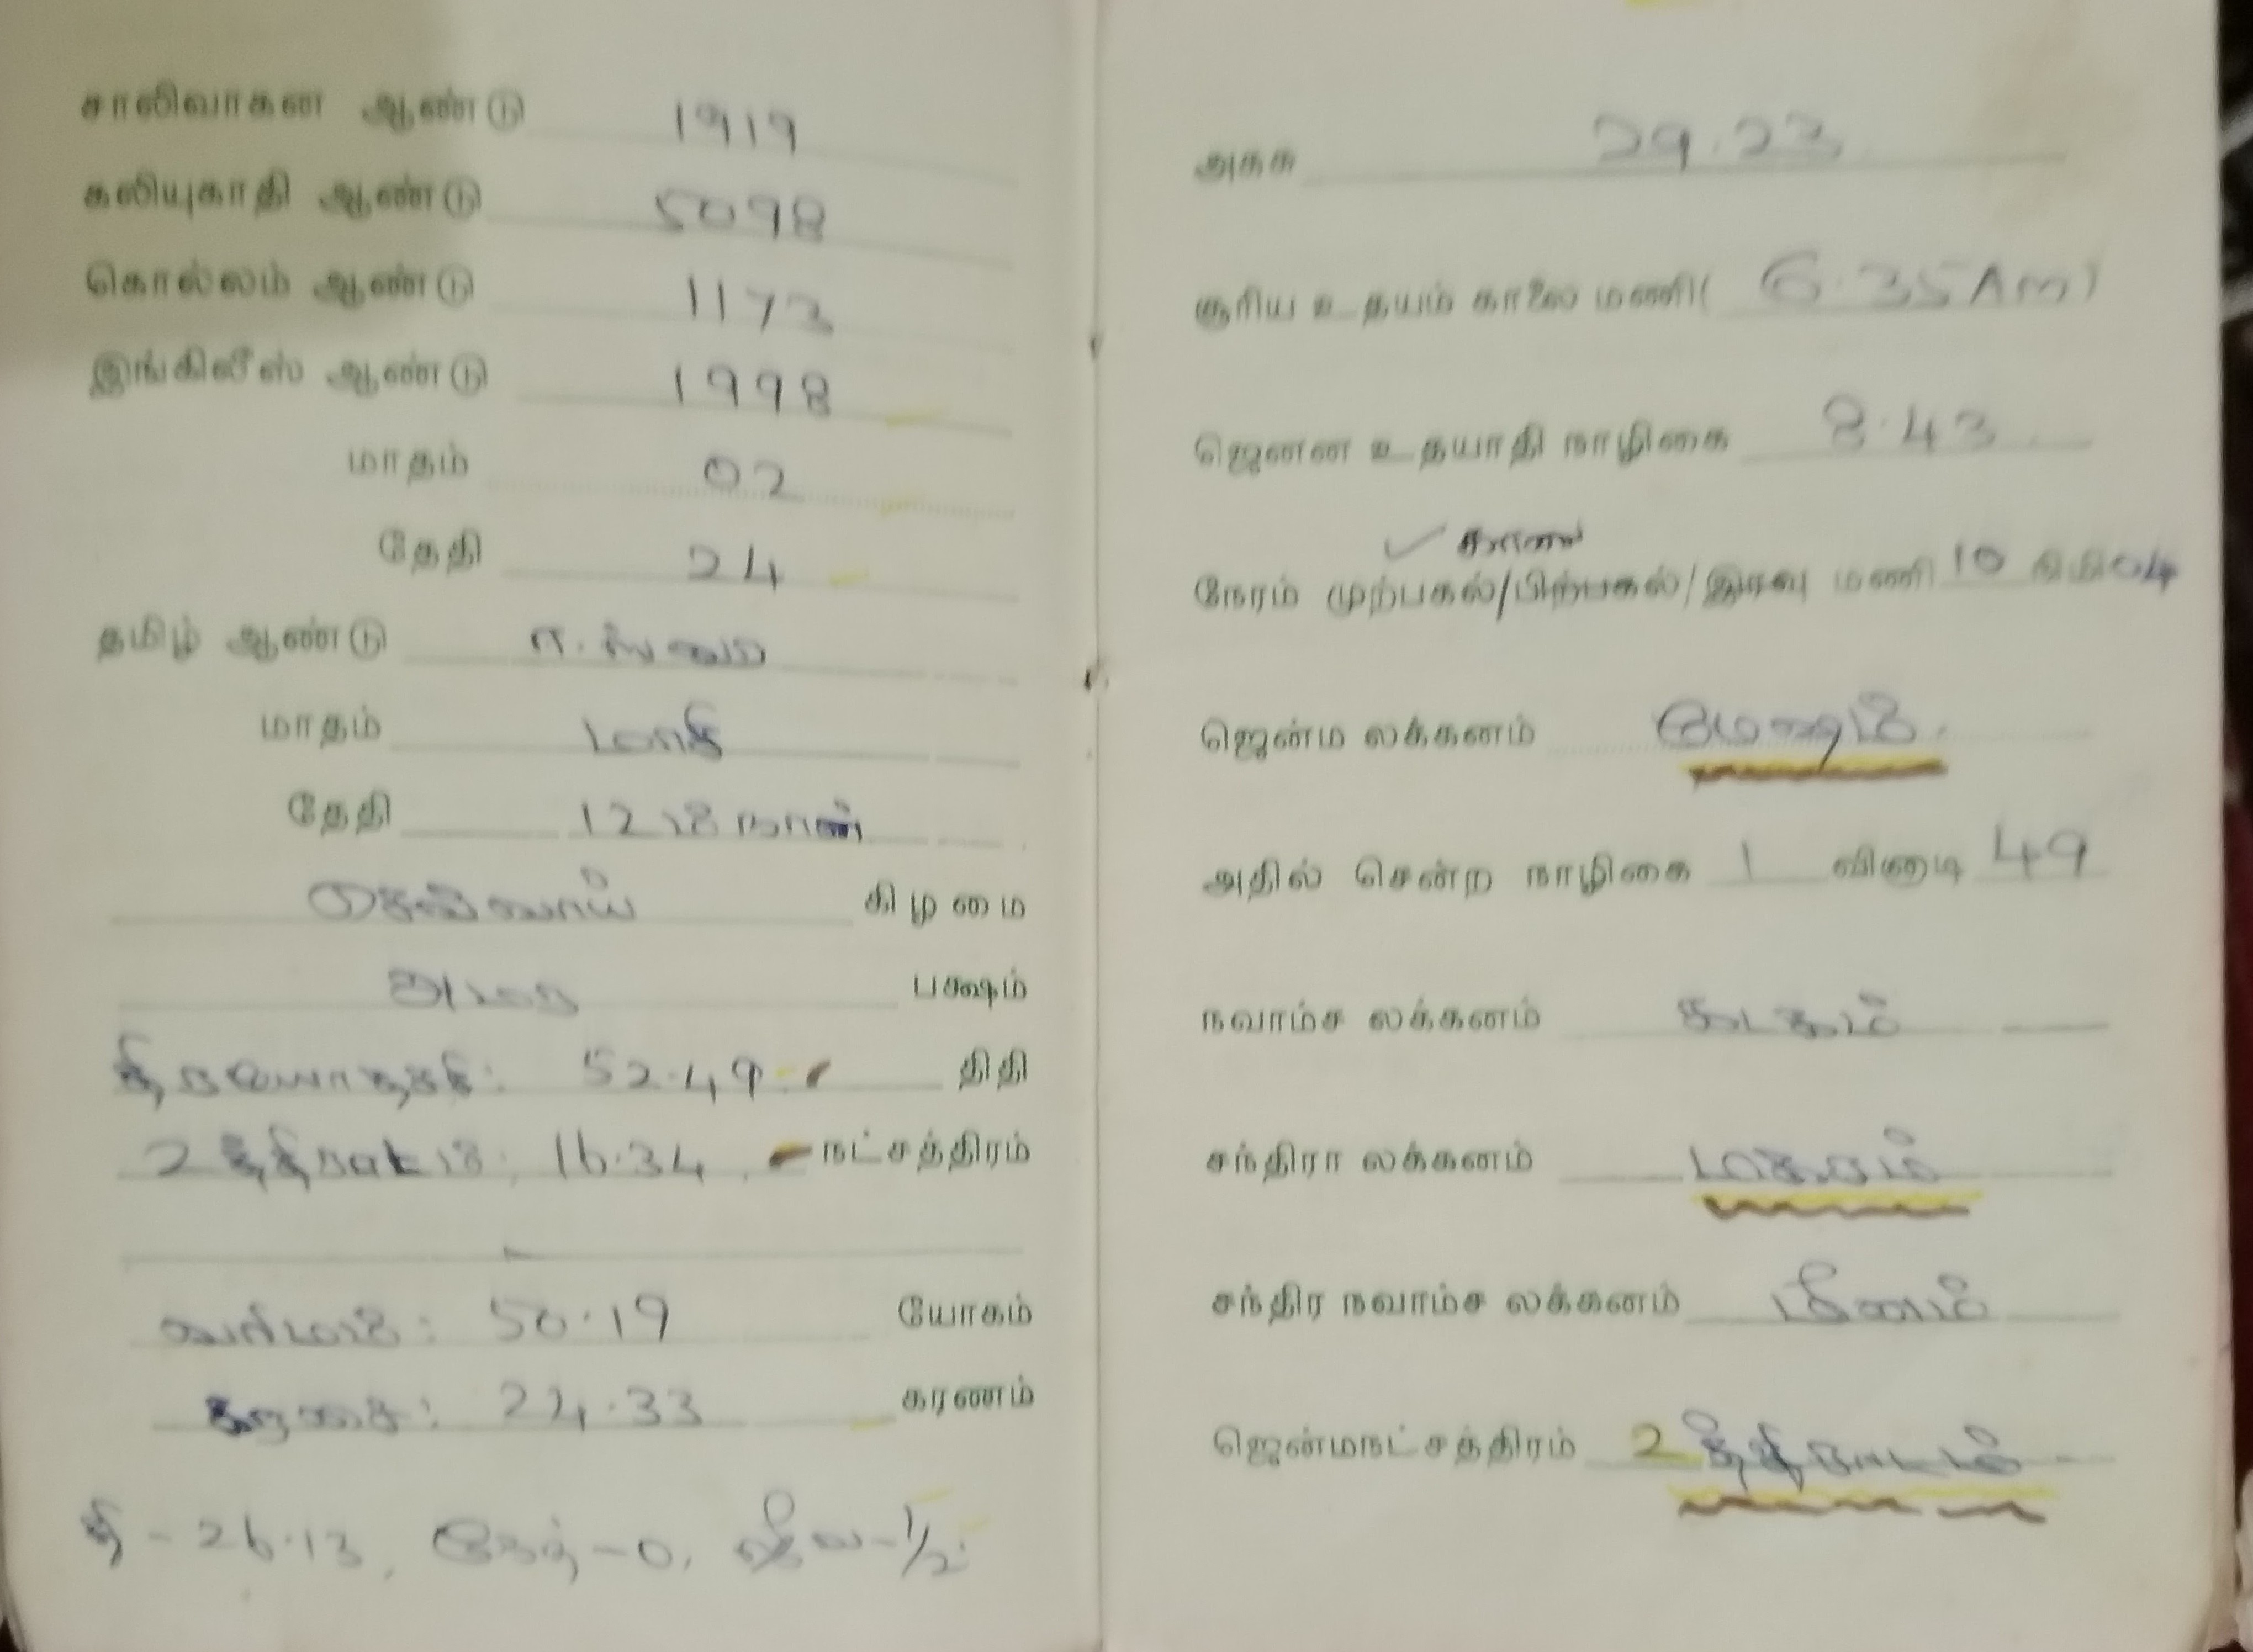 சாலிவாகன ஆண்டு 1919
கலியுகாதி ஆண்டு 5098
கொல்லம் ஆண்டு 1173
இங்கிலீஸ் ஆண்டு 1998
மாதம் 02
தேதி 24
தமிழ் ஆண்டு
மாதம் மாசி
தேதி 12ம் நாள்
செவ்வாய் கிழமை
அமர பக்ஷம்
திரயோதசி: 52.49 திதி
உத்திராடம்: 16.34 நட்சத்திரம்
50.19 யோகம்
கரசை: 24.33 கரணம்
தி - 26.13, நேத் - 0, ஜீவ - 1/2
அகசு 29.23
சூரிய உதயம் காலை மணி( 6.35 AM)
ஜெனன உதயாதி நாழிகை 8.43
காலை
நேரம் முற்பகல்/பிற்பகல்/இரவு மணி 10 நிமி 04
ஜென்ம லக்கனம் மேஷம்.
அதில் சென்ற நாழிகை 1 விநாடி 49
நவாம்ச லக்கனம் கடகம்
சந்திரா லக்கனம் மகரம்
சந்திர நவாம்ச லக்கனம் மீனம்
ஜென்மநட்சத்திரம் உத்திராடம்